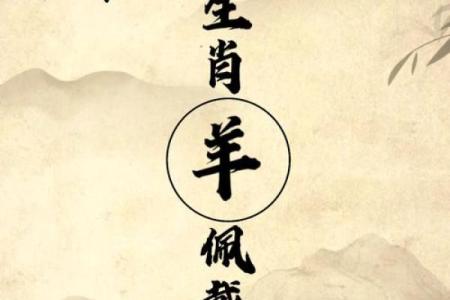 生肖羊佩戴